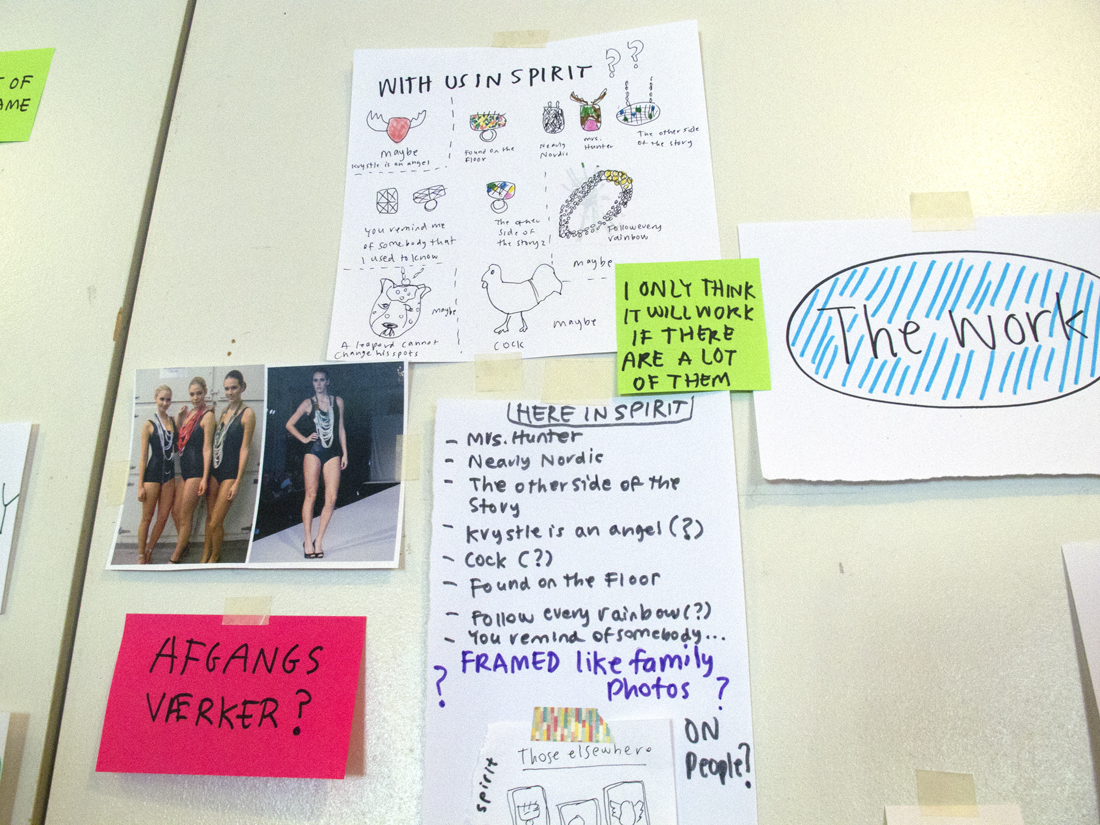 T OF
AME
WITH US IN SPIRIT ??
maybe
Krystle is an angel
Found on the
Floor
Nearly
Nordic
Mrs.
Hunter
The other side
of the story
You remind me
of somebody that
I used to know
The other
side of
the story?
Follow every
rainbow
maybe
maybe
A leopard cannot
Change his spots
maybe
COCK
I ONLY THINK
IT WILL WORK
IF THERE
ARE A LOT
OF THEM
The Work
HERE IN SPIRIT
- Mrs. Hunter
- Nearly Nordic
- The other side of the
Story
- Krystle is an angel (?)
- Cock (?)
- Found on the Floor
- Follow every rainbow (?)
- You remind of somebody...
? FRAMED like family
Photos ?
ON
People?
Those elsewhere
spirit
AFGANGS
VÆRKER?
Y